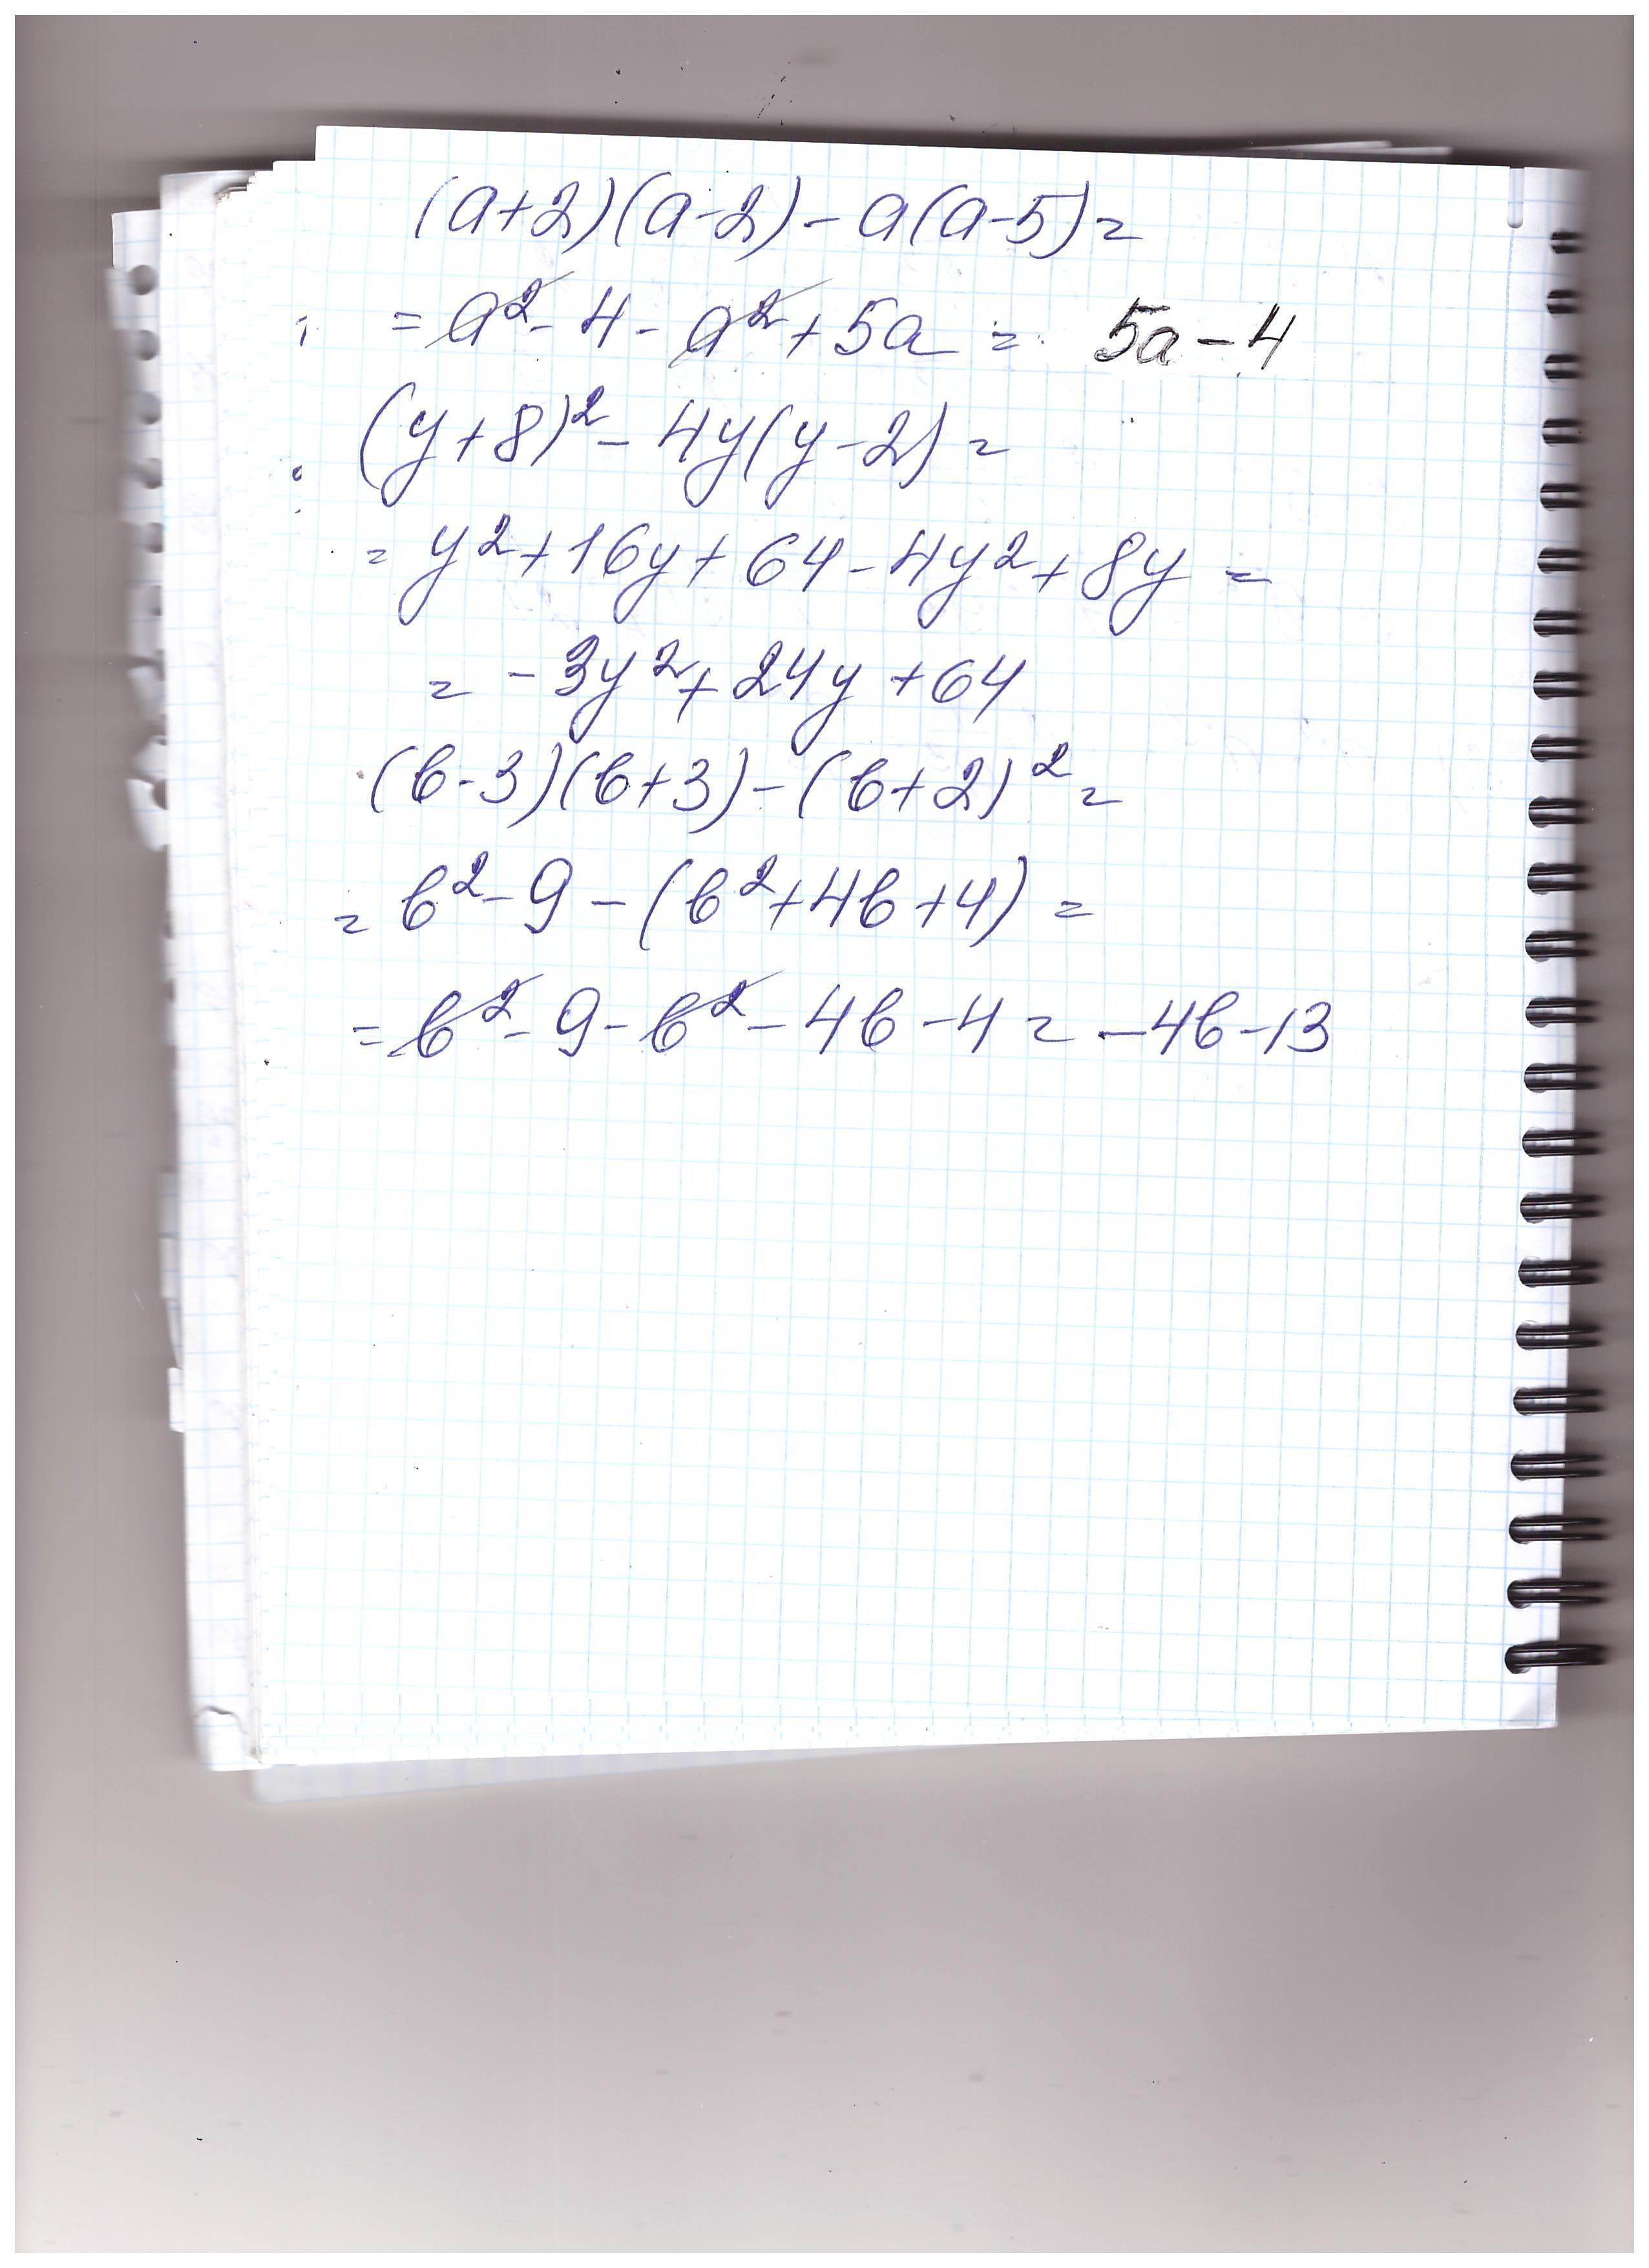 (a+2)(a-2)-a(a-5)=
=a²-4-a²+5a= 5a-4
(y+8)²-4y(y-2)=
=y²+16y+64-4y²+8y=
=-3y²+24y+64
(в-3)(в+3)-(в+2)²=
=в²-9-(в²+4в+4)=
=в²-9-в²-4в-4=-4в-13